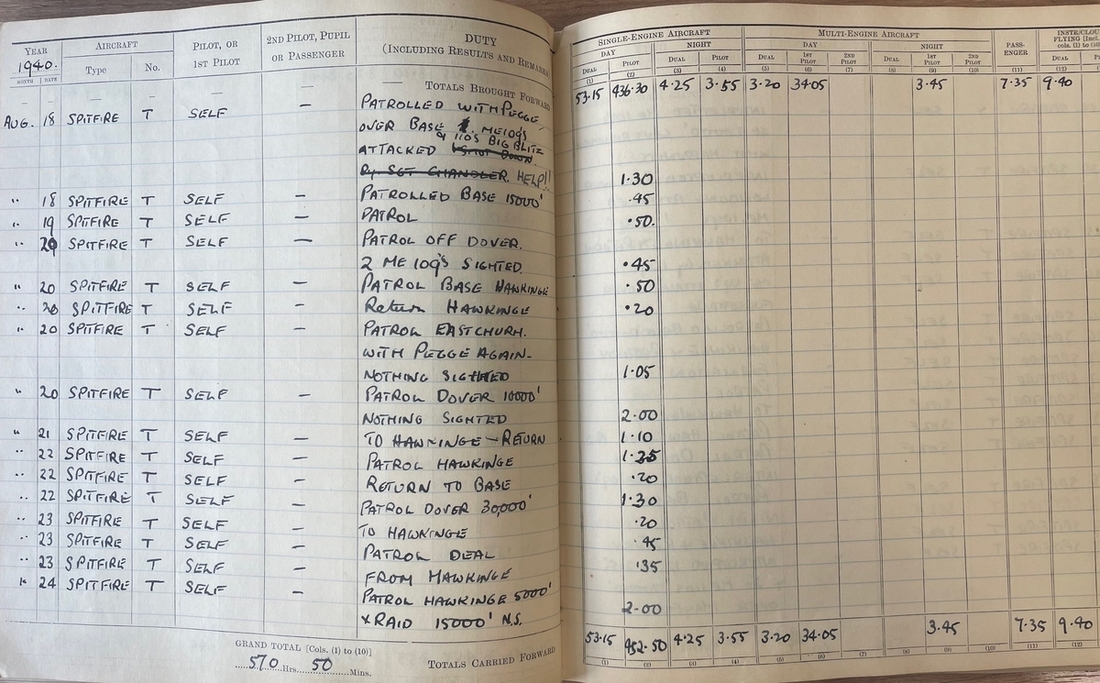 YEAR AIRCRAFT PILOT, OR 2ND PILOT, PUPIL DUTY
1940. 1ST PILOT OR PASSENGER (INCLUDING RESULTS AND REMARKS
MONTH DATE Type No.
SINGLE-ENGINE AIRCRAFT MULTI-ENGINE AIRCRAFT
DAY NIGHT DAY NIGHT PASS-ENGER
DUAL PILOT DUAL PILOT DUAL 1ST PILOT 2ND PILOT DUAL 1ST PILOT 2ND PILOT DUAL
(1) (2) (3) (4) (5) (6) (7) (8) (9) (10) (11) (12)
— — — — — TOTALS BROUGHT FORWARD 53.15 436.30 4.25 3.55 3.20 34.05 3.45 7.35 9.40
AUG. 18 SPITFIRE T SELF — PATROLLED WITH PEGGE
OVER BASE ME109's
& 110's BIG BLITZ
ATTACKED SHOT DOWN
By SGT CHANDLER. HELP!! 1.30
" 18 SPITFIRE T SELF — PATROLLED BASE 15000' .45
" 19 SPITFIRE T SELF — PATROL .50.
" 20 SPITFIRE T SELF — PATROL OFF DOVER.
2 ME 109's SIGHTED. .45
" 20 SPITFIRE T SELF — PATROL BASE HAWKINGE .50
" 20 SPITFIRE T SELF — Return HAWKINGE .20
" 20 SPITFIRE T SELF PATROL EASTCHURH.
WITH PEGGE AGAIN-
NOTHING SIGHTED 1.05
" 20 SPITFIRE T SELF — PATROL DOVER 10000'
NOTHING SIGHTED 2.00
" 21 SPITFIRE T SELF — TO HAWKINGE — RETURN 1.10
" 22 SPITFIRE T SELF — PATROL HAWKINGE 1.25
" 22 SPITFIRE T SELF — RETURN TO BASE .20
" 22 SPITFIRE T SELF — PATROL DOVER 30,000' 1.30
" 23 SPITFIRE T SELF — TO HAWKINGE .20
" 23 SPITFIRE T SELF — PATROL DEAL .45
" 23 SPITFIRE T SELF — FROM HAWKINGE .35
" 24 SPITFIRE T SELF — PATROL HAWKINGE 5000'
XRAID 15000' N.S. 2.00
GRAND TOTAL [Cols. (1) to (10)]
570 Hrs. 50 Mins.
TOTALS CARRIED FORWARD 53.15 452.50 4.25 3.55 3.20 34.05 3.45 7.35 9.40
(1) (2) (3) (4) (5) (6) (7) (8) (9) (10) (11) (12)